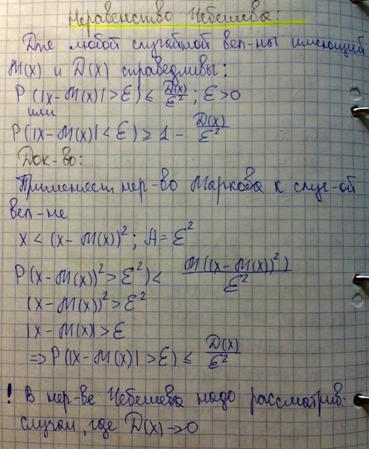 Неравенство Чебешева:
Для любой случайной вел-ны имеющий
M(x) и D(x) справедливы:
P(|x-M(x)|>Ɛ) ≤ D(x)/Ɛ²; Ɛ>0
или
P(|x-M(x)|<Ɛ) ≥ 1 - D(x)/Ɛ²
Док-во:
Применяем нер-во Маркова к случ-ой
вел-не
x < (x-M(x))²; A = Ɛ²
P(x-M(x))² > Ɛ²) < M((x-M(x))²)/Ɛ²
(x-M(x))² > Ɛ²
|x-M(x)| > Ɛ
⇒ P(|x-M(x)| > Ɛ) ≤ D(x)/Ɛ²
! В нер-ве Чебешева надо рассматрив.
случаи, где D(x)→0